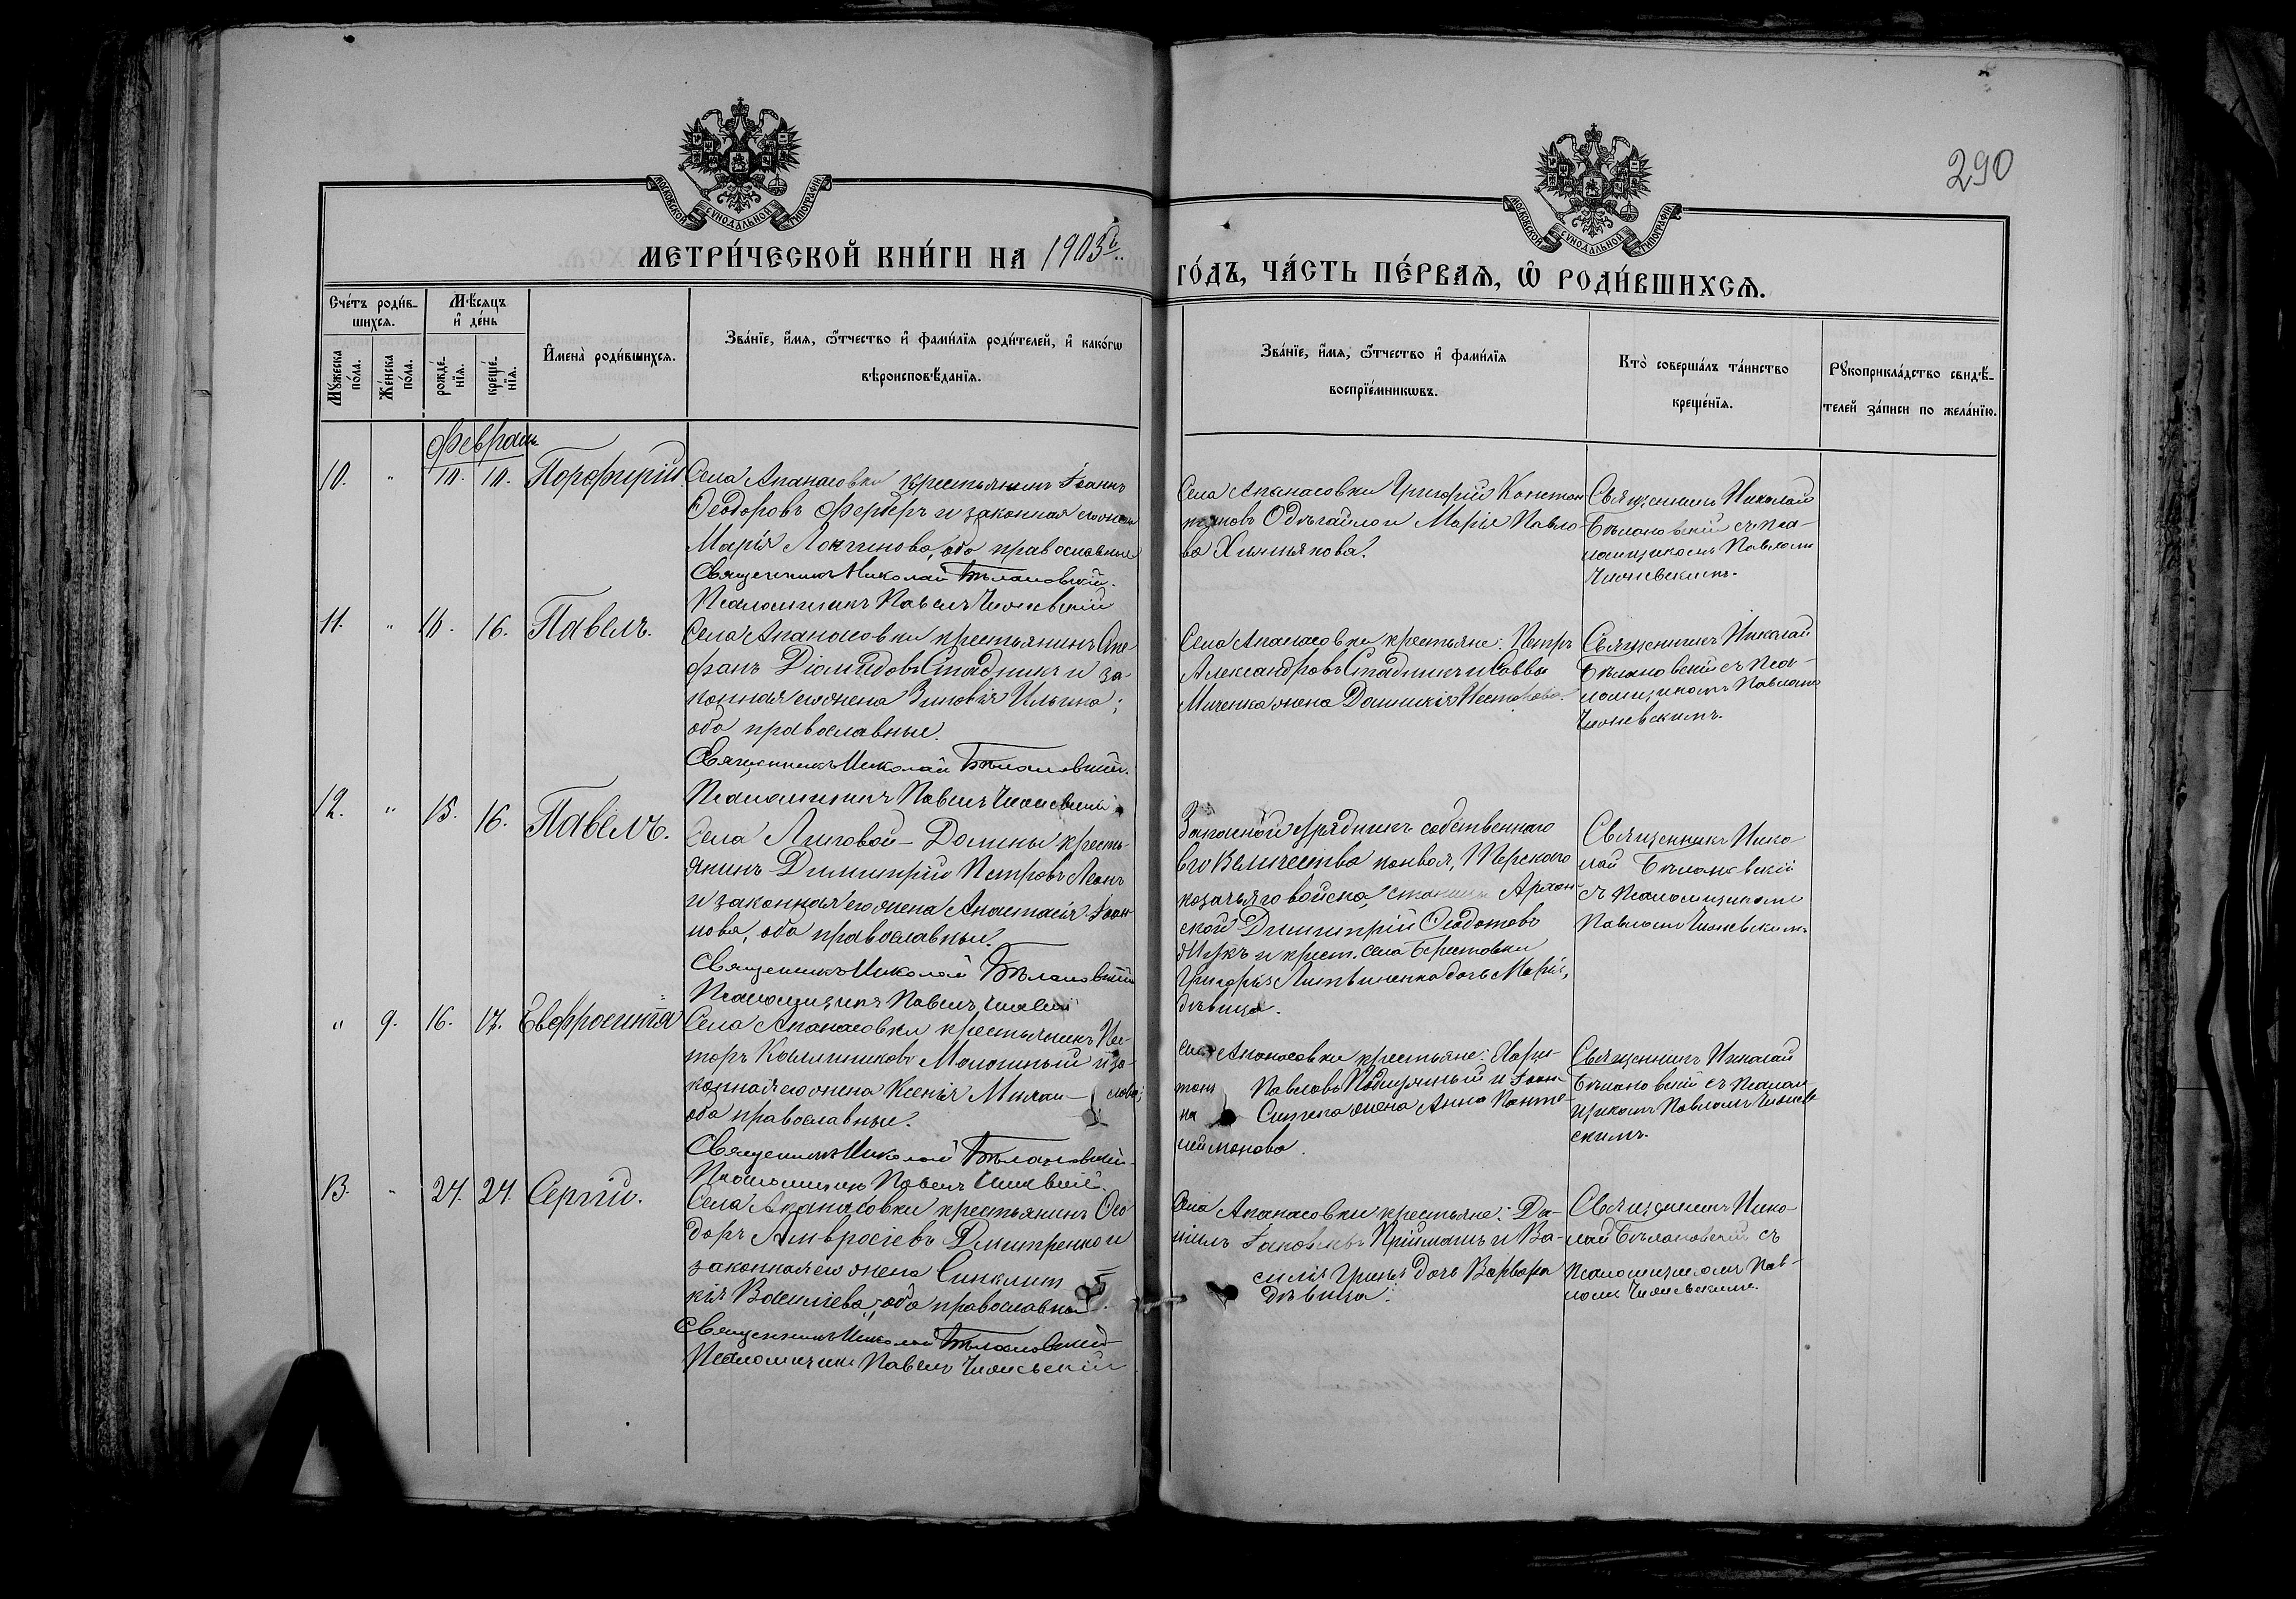 290
МОСКОВСКОЙ СУНОДАЛЬНОЙ ТИПОГРАФІИ
МОСКОВСКОЙ СУНОДАЛЬНОЙ ТИПОГРАФІИ
МЕТРИ́ЧЕСКОЙ КНИ́ГИ НА 1903й
ГО́ДЪ, ЧА́СТЬ ПЕ́РВАѦ, Ѽ РОДИ́ВШИХСѦ.
Сче́тъ роди́в-
шихсѧ.
Мꙋ́жеска по́ла.
Же́нска по́ла.
Мѣ́сѧцъ
и҆ де́нь
рожде́-
нїѧ.
креще́-
нїѧ.
И҆мена̀ роди́вшихсѧ.
Зва́нїе, и҆́мѧ, ѻ҆́тчество и҆ фами́лїѧ роди́телей, и҆ како́гѡ
вѣроисповѣ́данїѧ.
Зва́нїе, и҆́мѧ, ѻ҆́тчество и҆ фами́лїѧ
воспрїе́мникѡвъ.
Кто̀ соверша́лъ та́инство
креще́нїѧ.
Рꙋкоприкла́дство свидѣ́-
телей за́писи по жела́нїю.
Февраль
10. " 10. 10. Порфирій.
Села Апанасовки крестьянинъ Іоаннъ
Ѳеодоровъ и законная его жена
Марія Логгинова, оба православные
Священникъ Николай Бѣлановскій.
Псаломщикъ Павелъ
Села Апанасовки Григорій Констан
тиновъ и Марія Павло
ва
Священникъ Николай
Бѣлановскій съ пса-
ломщикомъ Павломъ
11. " 11. 16. Павелъ.
Села Апанасовки крестьянинъ Сте
фанъ Діомидовъ Стадникъ и за-
конная его жена Зиновія Ильина;
оба православные.
Священникъ Николай Бѣлановскій.
Псаломщикъ Павелъ
Села Апанасовки крестьяне: Петръ
Александровъ Стадникъ и Саввы
жена
Священникъ Николай
Бѣлановскій съ пса-
ломщикомъ Павломъ
12. " 15. 16. Павелъ.
Села Липовой-Долины кресть-
янинъ Димитрій Петровъ
и законная его жена Анастасія Іоан-
нова, оба православные.
Священникъ Николай Бѣлановскій
Псаломщикъ Павелъ
Запасной урядникъ собственнаго
Его Величества конвоя, Терскаго
казачьяго войска, станицы Архон-
ской Димитрій Ѳеодотовъ
и крест. села Берестовки
Григорія Литвиненка дочь Марія,
дѣвица.
Священникъ Нико-
лай Бѣлановскій
съ псаломщикомъ
Павломъ
" 9. 16. 17. Евфросинія
Села Апанасовки крестьянинъ Нес-
торъ и за-
конная его жена Ксенія Михаи-лова;
оба православные.
Священникъ Николай Бѣлановскій.
Псаломщикъ Павелъ
Села Апанасовки крестьяне: Хари-
тонъ Павловъ и Іоан-
на жена Анна Панте-
леймонова.
Священникъ Николай
Бѣлановскій съ псалом
щикомъ Павломъ
13. " 24. 24. Сергій.
Села Апанасовки крестьянинъ Ѳео
доръ Амвросіевъ Дмитренко и
законная его жена Синклити
кія Василіева; оба православные.
Священникъ Николай Бѣлановскій
Псаломщикъ Павелъ
Села Апанасовки крестьяне: Да-
ніилъ Іаковлевъ и Ва-
силія дочь Варвара
дѣвица.
Священникъ Нико-
лай Бѣлановскій съ
псаломщикомъ Пав-
ломъ